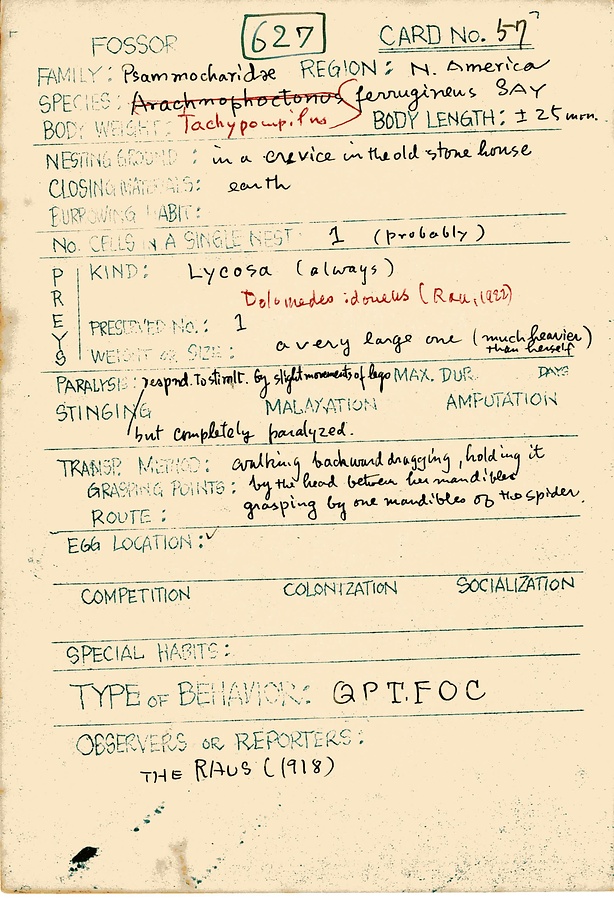 FOSSOR 627 CARD No. 57
FAMILY: Psammocharidae REGION: N. America
SPECIES: Arachnophoctonus ferrugineus SAY
BODY WEIGHT: Tachypompilus BODY LENGTH: ± 25 mm.
NESTING GROUND: in a crevice in the old stone house
CLOSING MATERIALS: earth
BURROWING HABIT:
No. CELLS IN A SINGLE NEST: 1 (probably)
PREYS
KIND: Lycosa (always)
Dolomedes idoneus (Rau, 1922)
PRESERVED No.: 1
WEIGHT OR SIZE: a very large one (much heavier than herself)
PARALYSIS: respnd. to stimlt. by slight movements of legs MAX. DUR. DAYS
STINGING MALAXATION AMPUTATION
but completely paralyzed.
TRANSP. METHOD: walking backward dragging, holding it
GRASPING POINTS: by the head between her mandibles
ROUTE: grasping by one mandibles of the spider.
EGG LOCATION:
COMPETITION COLONIZATION SOCIALIZATION
SPECIAL HABITS:
TYPE OF BEHAVIOR: QPT.FOC
OBSERVERS OR REPORTERS:
THE RAUS (1918)